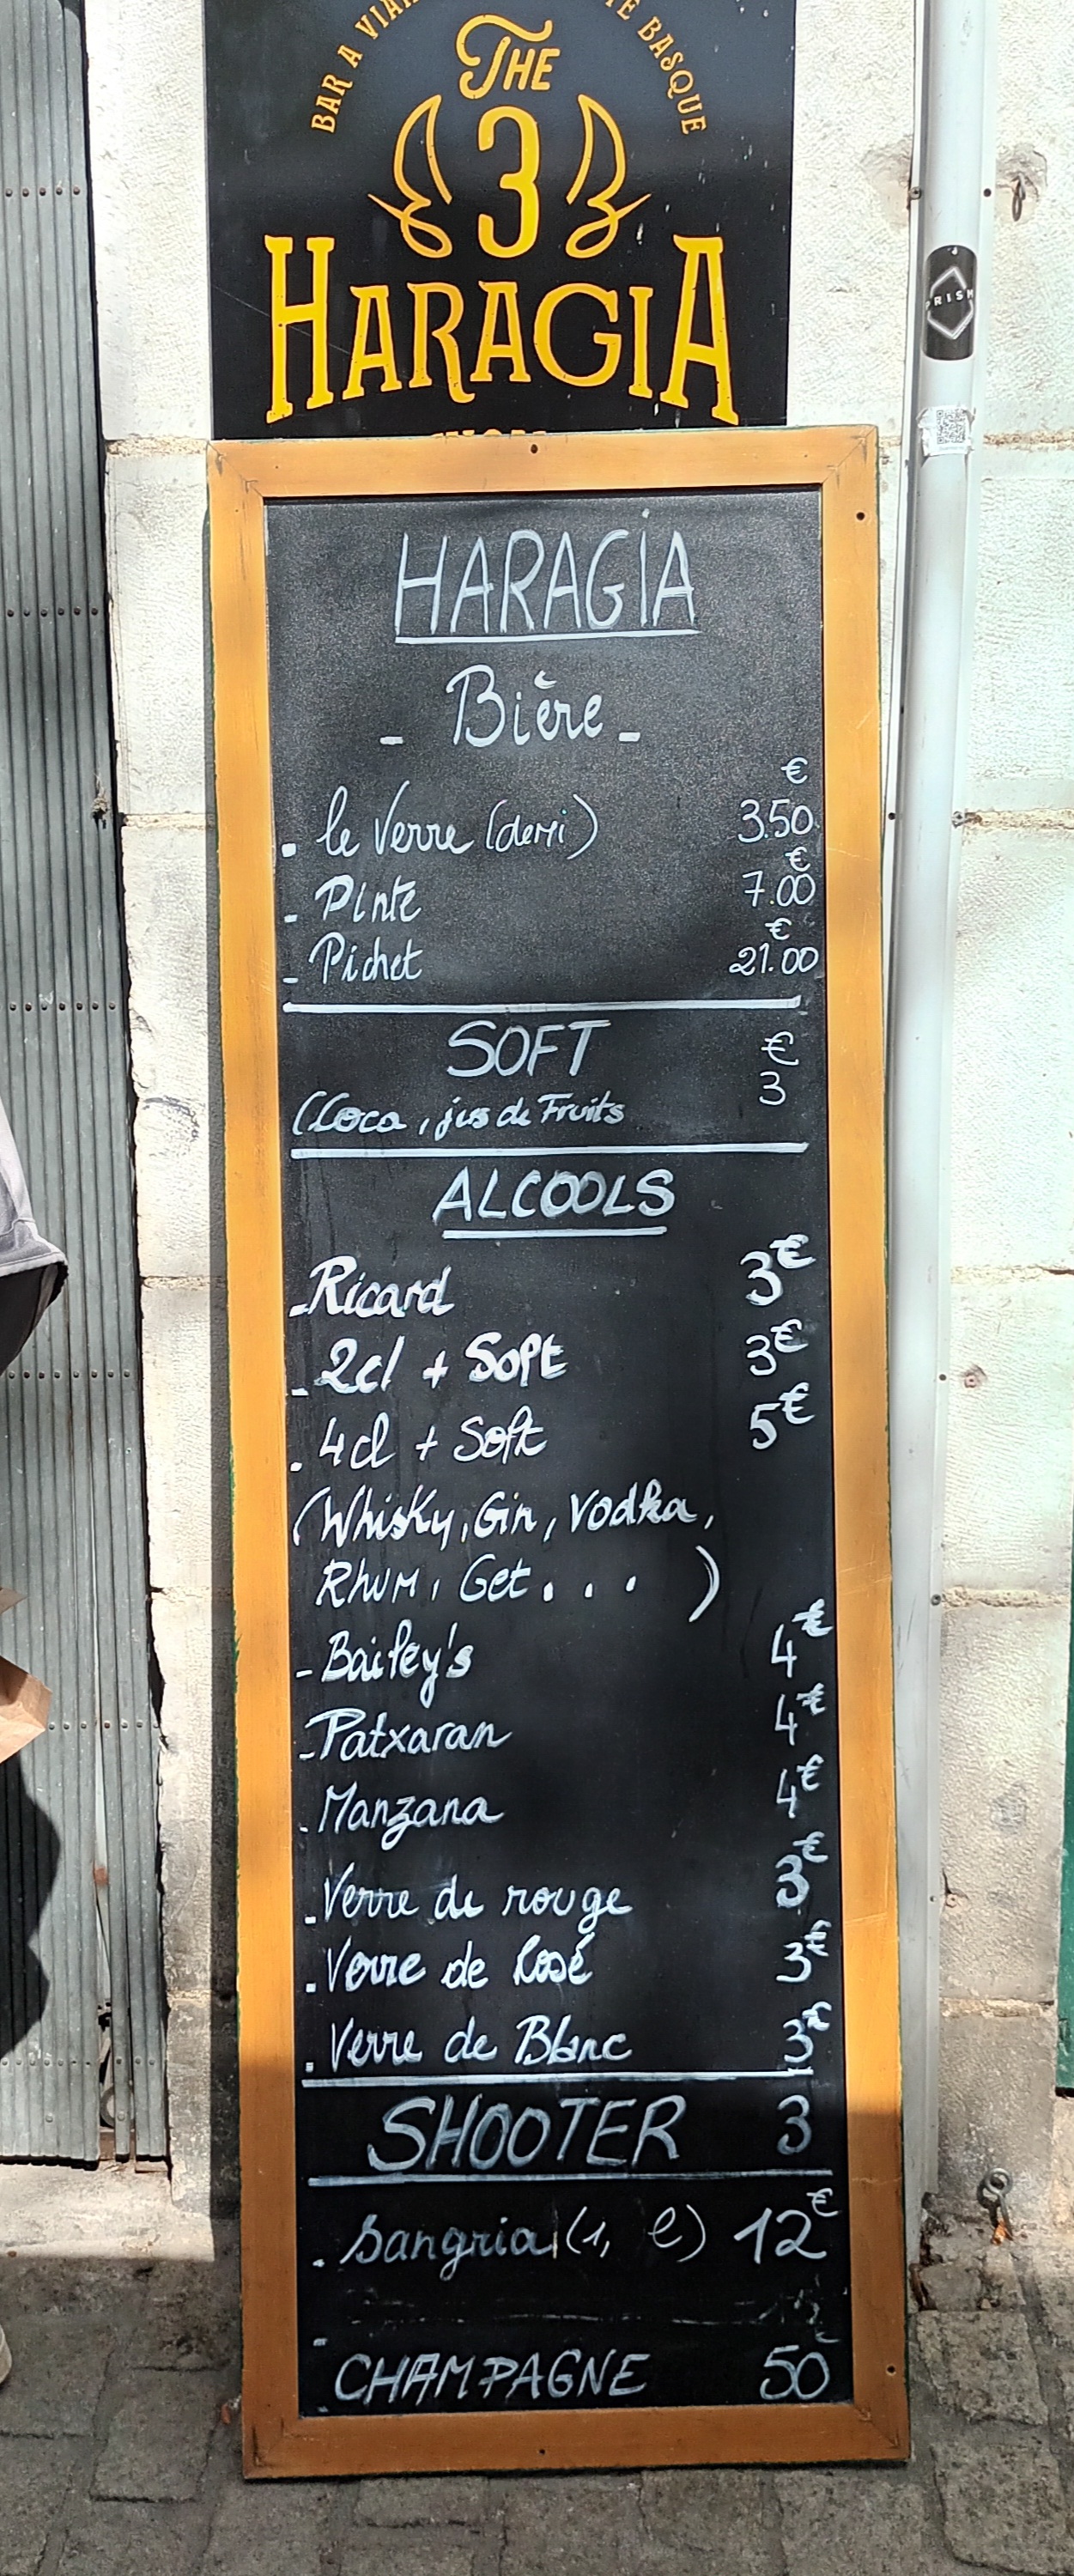 BAR A
BASQUE
THE
3
HARAGIA
PRISM
HARAGIA
- Bière -
€
. le Verre (demi) 3.50
€
- Pinte 7.00
€
- Pichet 21.00
SOFT €
3
(Coca, jus de Fruits
ALCOOLS
- Ricard 3€
- 2cl + Soft 3€
. 4cl + Soft 5€
(Whisky, Gin, Vodka,
Rhum, Get . . . )
- Bailey's 4€
- Patxaran 4€
. Manzana 4€
. Verre de rouge 3€
. Verre de Rosé 3€
. Verre de Blanc 3€
SHOOTER 3
. Sangria (1, l) 12€
- CHAMPAGNE 50